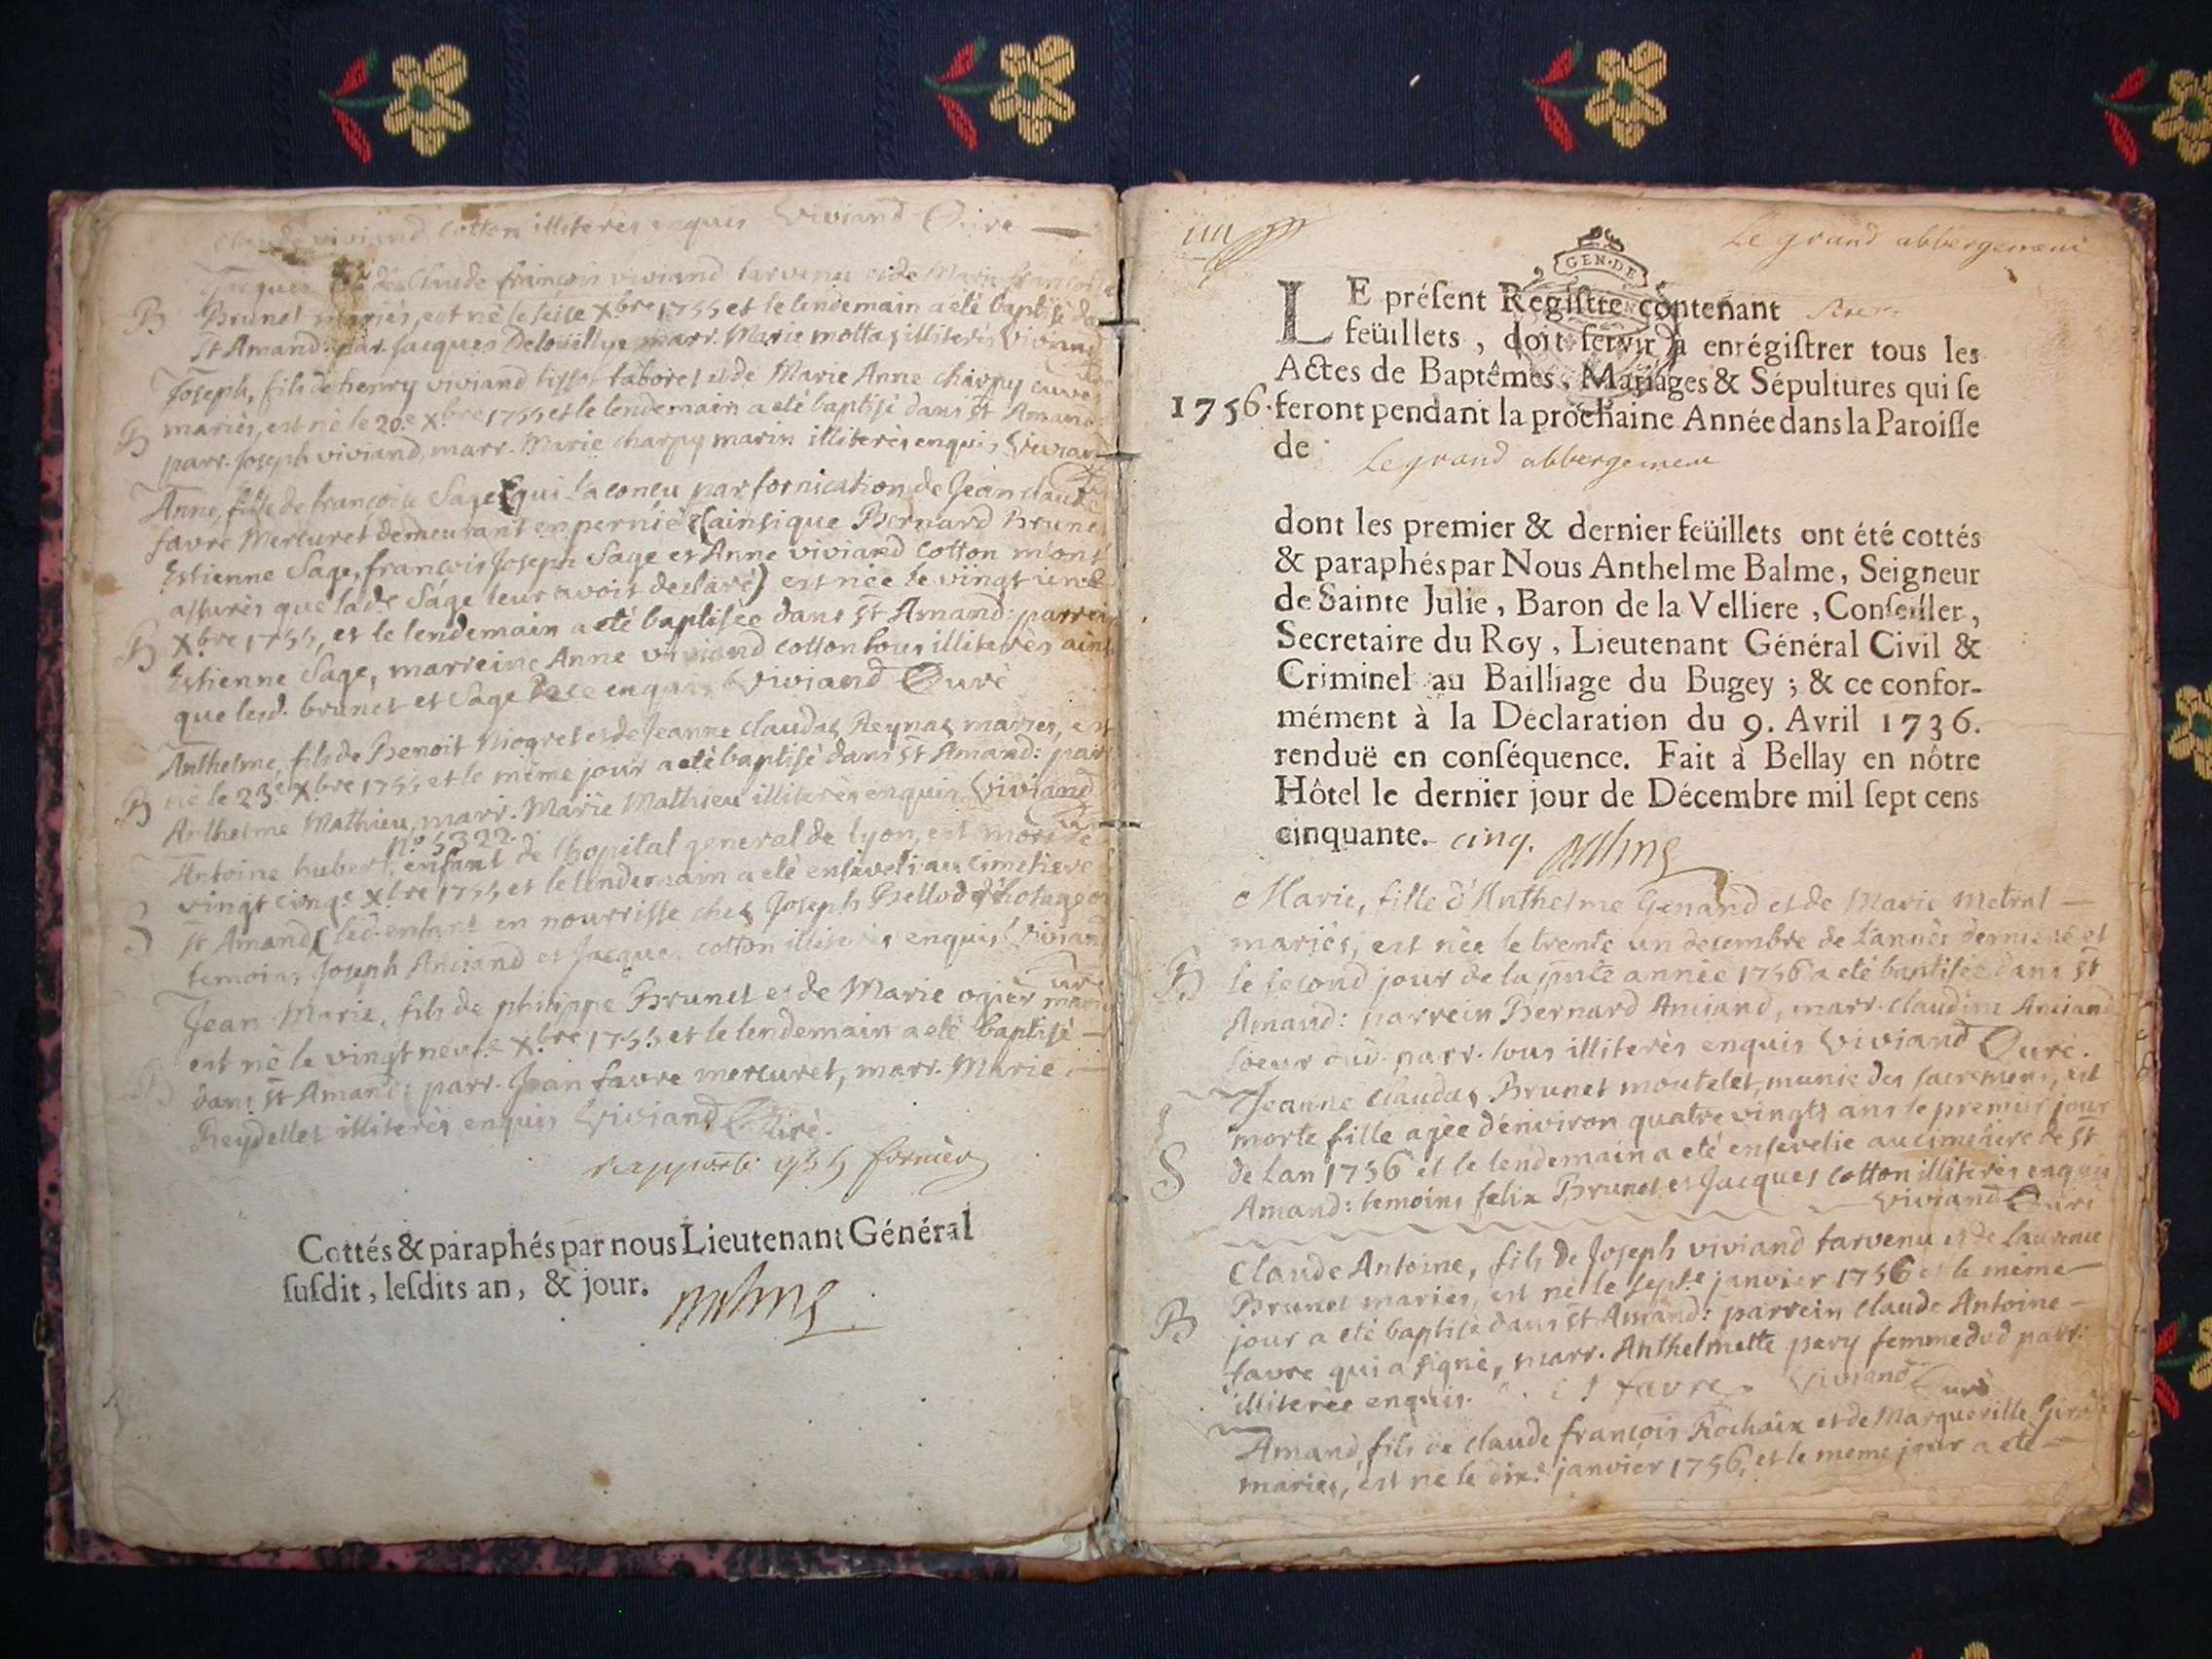 Claude viviand cotton illiterès enquis Viviand Curé
Jacques fils de Claude françois viviand tarvenu et de Marie françoise
B Brunet mariés, est né le seise Xbre 1755 et le lendemain a eté baptisé da
St Amand: par. Jacques Deloüillye marr. Marie mottas illiterès Viviand
Joseph, fils de henry viviand tissot taboret et de Marie Anne charpy
B mariés, est né le 20e Xbre 1755 et le lendemain a eté baptisé dans St Amand
parr. Joseph viviand, marr. Marie charpy marin illiterès enquis Vivian
Anne, fille de françoise Sage (qui l'a conçu par fornication de Jean claude
favre Mercuret demeurant en perniè) (ainsi que Bernard Brunet
Estienne Sage, françois Joseph Sage et Anne viviand cotton m'ont
assurès que lade Sage leur avoit declaré) est née le vingt une
B Xbre 1755, et le lendemain a eté baptisée dans St Amand: parrein
Estienne Sage, marreine Anne viviand cotton tous illiterès ainsi
que lesd. brunet et Sage enquis Viviand Curé
Anthelme, fils de Benoit Niogret et de Jeanne claudas Reynas mariés, est
B né le 23e Xbre 1755 et le même jour a eté baptisé dans St Amand: parr
Anthelme Mathieu, marr. Marie Mathieu illiterès enquis Viviand
n° 5322.
Antoine hubert, enfant de l'hopital general de lyon, est mort le
vingt cinqe Xbre 1755 et le lendemain a eté enseveli au cimetiere
S St Amand (led. enfant en nourrisse chez Joseph Bellod
temoins Joseph Anciand et Jacques cotton illiterès enquis Vivian
Jean Marie, fils de philippe Brunet et de Marie ogier mariés
est né le vingt neufe Xbre 1755 et le lendemain a eté baptisé
B dans St Amand: parr. Jean favre mercuret, marr. Marie
Reydellet illiterès enquis Viviand Curé.
Cottés & paraphés par nous Lieutenant Général
susdit, lesdits an, & jour.
Le grand abbergement
GEN·DE
LE présent Registre contenant
feüillets, doit servir à enrégistrer tous les
Actes de Baptêmes, Mariages & Sépultures qui se
1756. feront pendant la prochaine Année dans la Paroisse
de Le grand abbergement
dont les premier & dernier feüillets ont été cottés
& paraphés par Nous Anthelme Balme, Seigneur
de Sainte Julie, Baron de la Velliere, Conseiller,
Secretaire du Roy, Lieutenant Général Civil &
Criminel au Bailliage du Bugey; & ce confor-
mément à la Déclaration du 9. Avril 1736.
renduë en conséquence. Fait à Bellay en nôtre
Hôtel le dernier jour de Décembre mil sept cens
cinquante. cinq. Balme
Marie, fille d'Anthelme Genand et de Marie Metral
mariés, est née le trente un decembre de l'année derniere et
B le second jour de la pnte année 1756 a eté baptisée dans St
Amand: parrein Bernard Anciand, marr. claudine Anciand
soeur dud. parr. tous illiterès enquis Viviand Curé.
Jeanne Claudas Brunet moutelet, munie des sacremens, est
morte fille agée d'environ quatre vingts ans le premier jour
S de l'an 1756 et le lendemain a eté ensevelie au cimetiere de St
Amand: temoins felix Brunet et Jacques cotton illiterès enquis
Viviand Curé
Claude Antoine, fils de Joseph viviand tarvenu et de laurence
Brunet mariés, est né le septe janvier 1756 et le même
B jour a eté baptisé dans St Amand: parrein Claude Antoine
favre qui a signé, marr. Anthelmette pery femme dud parr.
illiterée enquis. favre Viviand Curé
Amand, fils de claude françois Rochaix et de Marguerille
mariés, est né le dixe janvier 1756, et le meme jour a eté